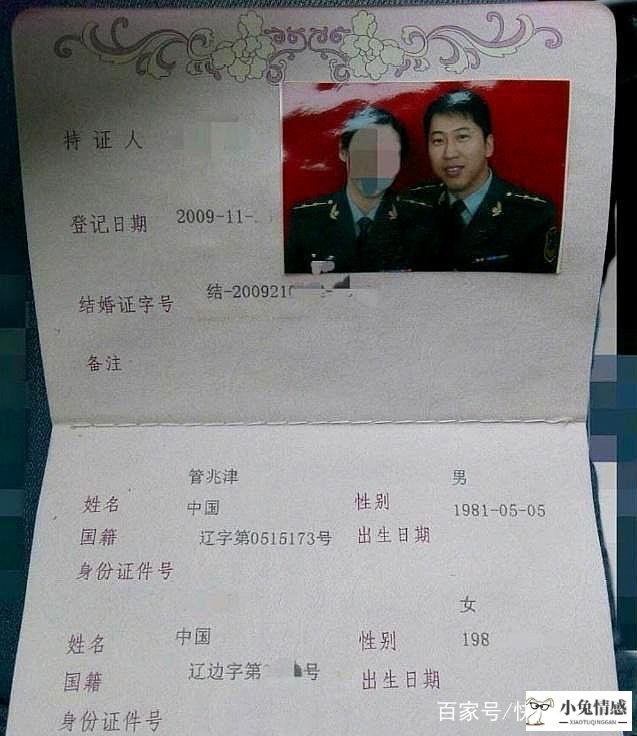 持证人
登记日期 2009-11-
结婚证字号 结-2009210
备注
管兆津 男
姓名 中国 性别 1981-05-05
国籍 辽字第0515173号 出生日期
身份证件号
女
姓名 中国 性别 198
国籍 辽边字第 号 出生日期
身份证件号
百家号/
小兔情感
XIAOTUQINGGAN